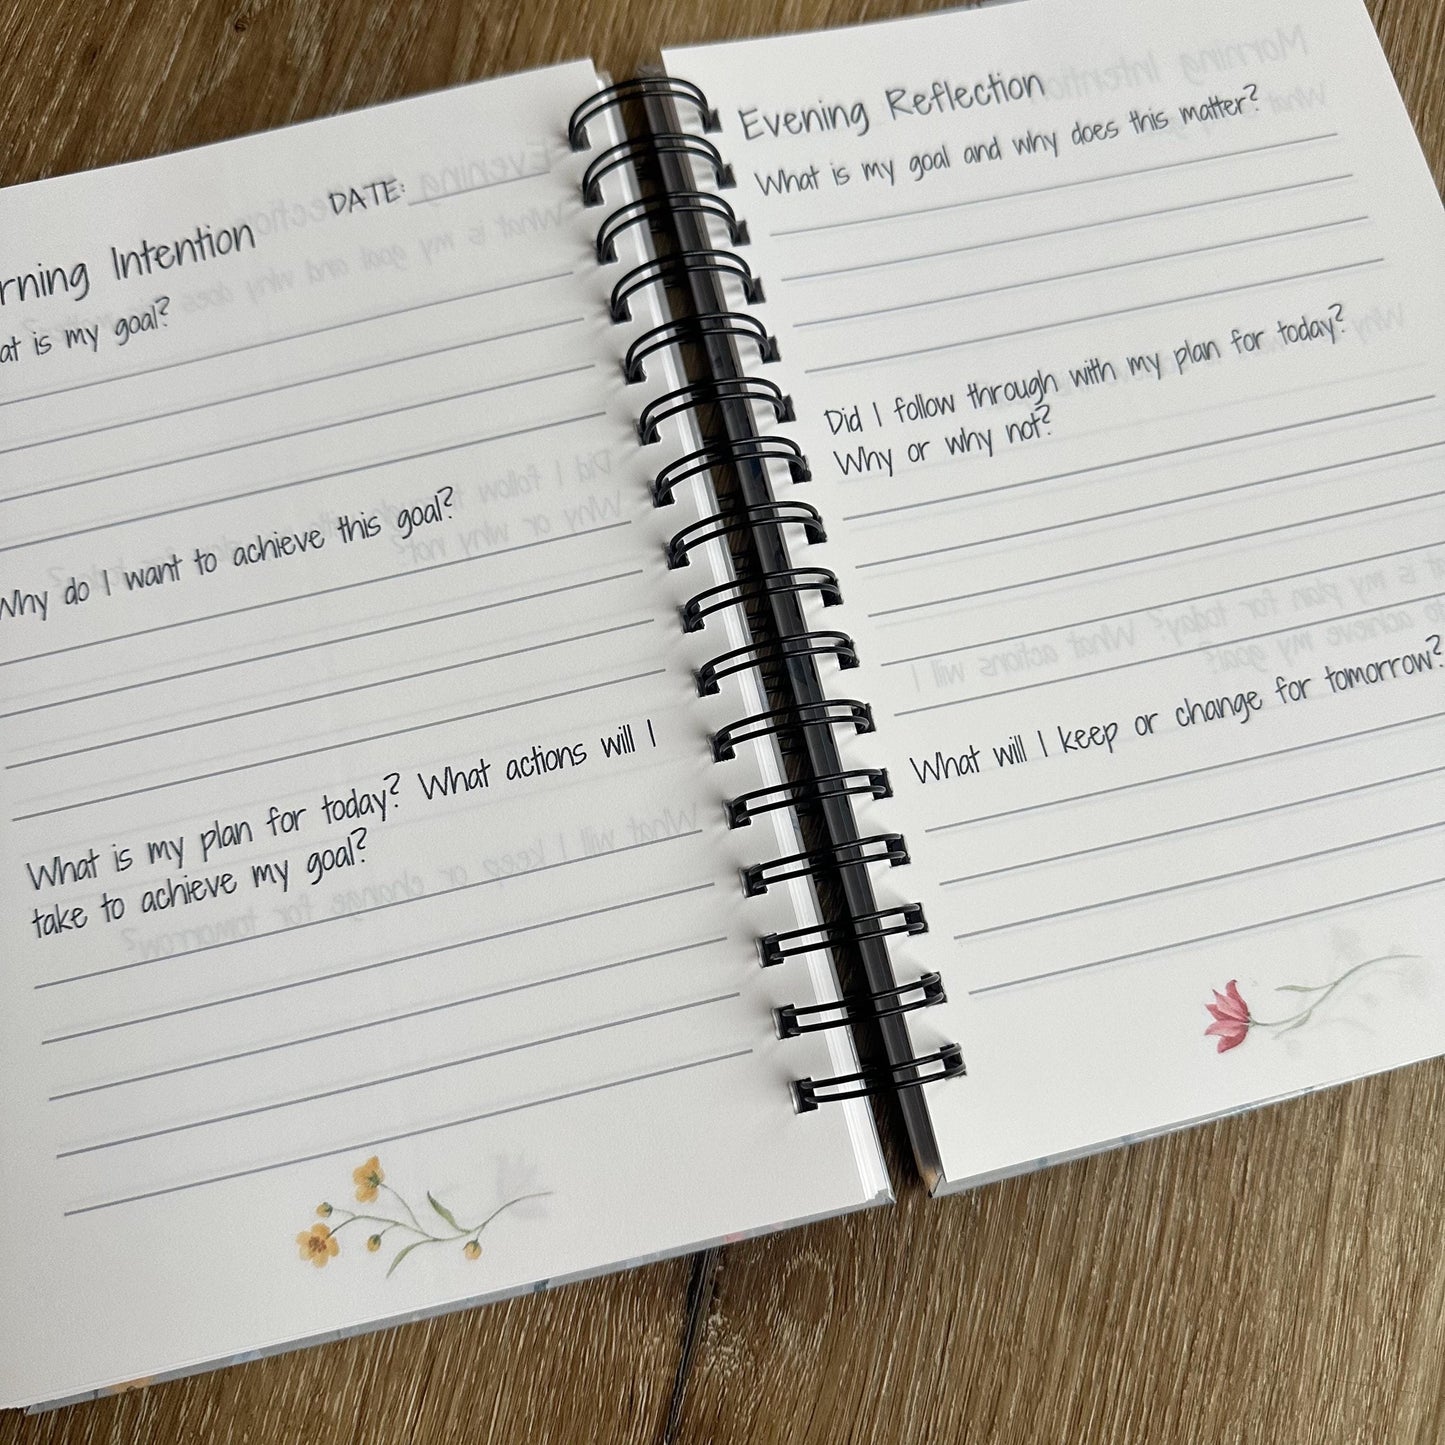 DATE:
rning Intention
at is my goal?
Why do I want to achieve this goal?
What is my plan for today? What actions will I
take to achieve my goal?
Evening Reflection
What is my goal and why does this matter?
Did I follow through with my plan for today?
Why or why not?
What will I keep or change for tomorrow?